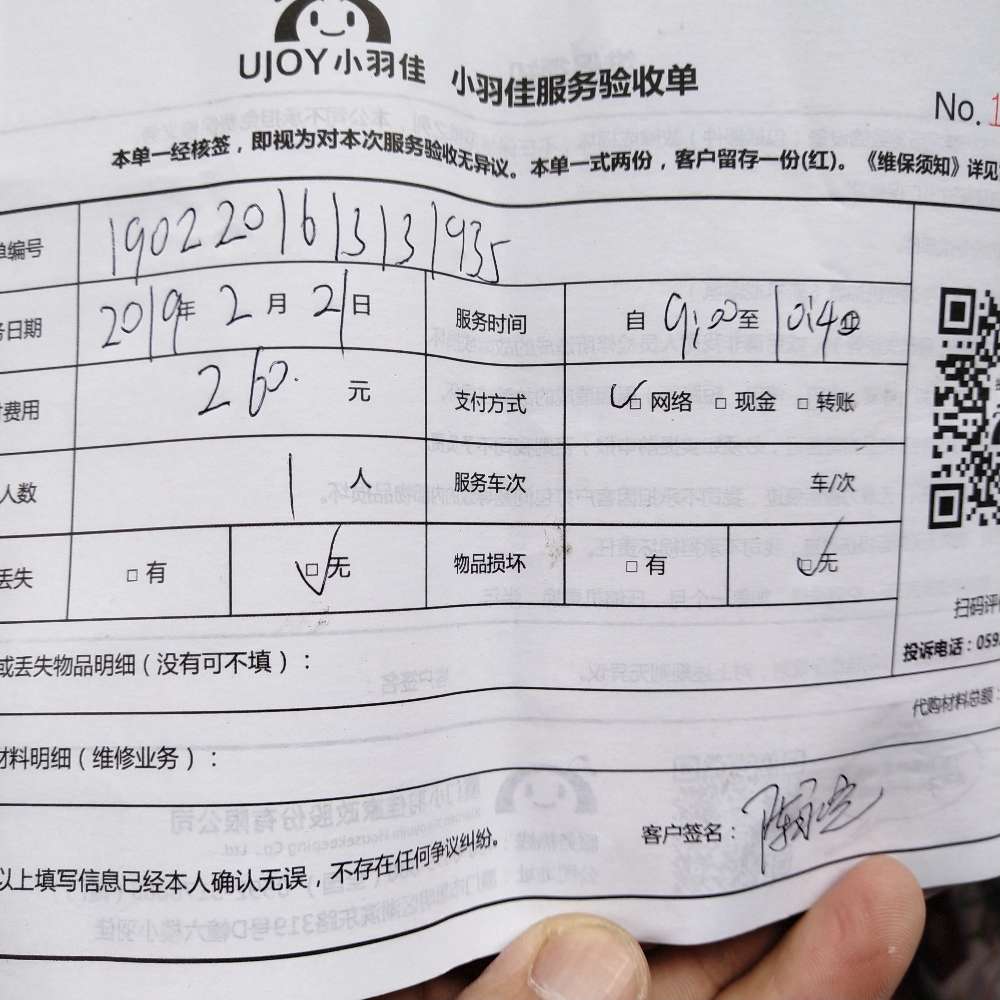 UJOY小羽佳 小羽佳服务验收单
No.1
本单一经核签，即视为对本次服务验收无异议。本单一式两份，客户留存一份(红)。《维保须知》详见
单编号 1902201613131935
务日期 2019年 2月 21日 服务时间 自 9:00至 10:40
费用 260. 元 支付方式 □ 网络 □ 现金 □ 转账
人数 1 人 服务车次 车/次
丢失 □ 有 □ 无 物品损坏 □ 有 □ 无
扫码评
或丢失物品明细（没有可不填）：
投诉电话：059
材料明细（维修业务）：
代购材料总额：
客户签名：
以上填写信息已经本人确认无误，不存在任何争议纠纷。